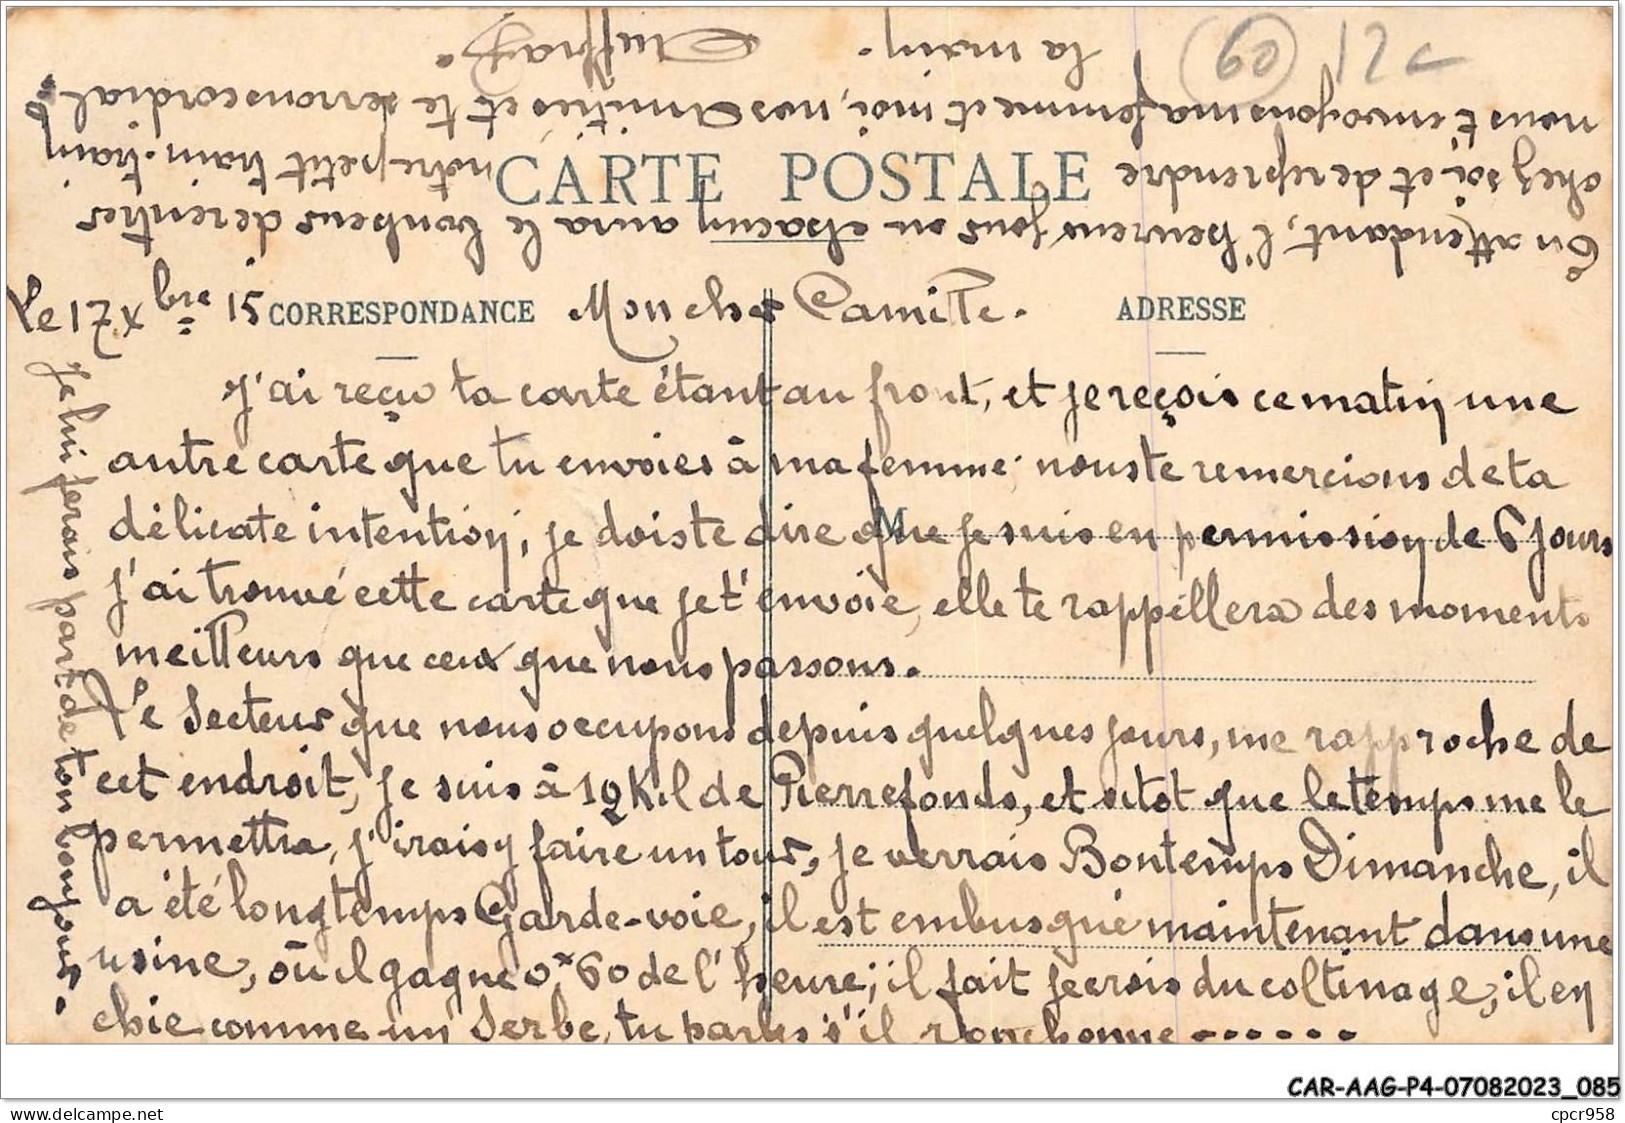 Le 17 Xbre 15
CORRESPONDANCE
Mon cher Camille.
ADRESSE
J'ai reçu ta carte étant au front, et je reçois ce matin une
autre carte que tu envoies à ma femme; nous te remercions de ta
délicate intention, je dois te dire que je suis en permission de 6 jours
M
j'ai trouvé cette carte que je t'envoie, elle te rappellera des moments
meilleurs que ceux que nous passons.
Le secteur que nous occupons depuis quelques jours, me rapproche de
cet endroit, je suis à 12 Kil de Pierrefonds, et sitot que le temps me le
permettra, j'irais y faire un tour, je verrais Bontemps Dimanche, il
a été longtemps Garde-voie, il est embusqué maintenant dans une
usine, où il gagne 0,60 de l'heure; il fait je crois du coltinage, il en
chie comme un Serbe, tu parles s'il ronchonne ......
Je lui ferais part de ton bonjour.
En attendant, l'heureux jour ou chacun aura le bonheur de rentrer
chez soi et de reprendre notre petit train-train
CARTE POSTALE
nous t'envoyons ma femme et moi, nos Amitiés et te serrons cordial^t
la main.
60 12€
CAR-AAG-P4-07082023_085
www.delcampe.net
cpcr958